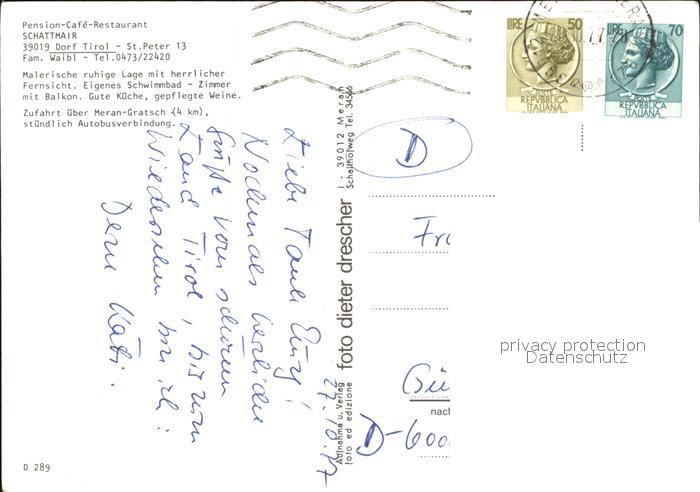 Pension-Café-Restaurant
SCHATTMAIR
39019 Dorf Tirol - St.Peter 13
Fam. Waibl - Tel.0473/22420
Malerische ruhige Lage mit herrlicher
Fernsicht. Eigenes Schwimmbad - Zimmer
mit Balkon. Gute Küche, gepflegte Weine.
Zufahrt über Meran-Gratsch (4 km),
stündlich Autobusverbindung.
Liebe Tante
Nochmals herzliche
Grüße vom schönen
Land Tirol, bis zum
Wiedersehen
Deine Käti.
D 289
Aufnahme u. Verlag
foto ed edizione
foto dieter drescher
I 39012 Meran
LIRE 50
POSTE
REPVBBLICA
ITALIANA
LIRE 70
POSTE
REPVBBLICA
ITALIANA
D
Fr
Gü
nach
D-600
privacy protection
Datenschutz